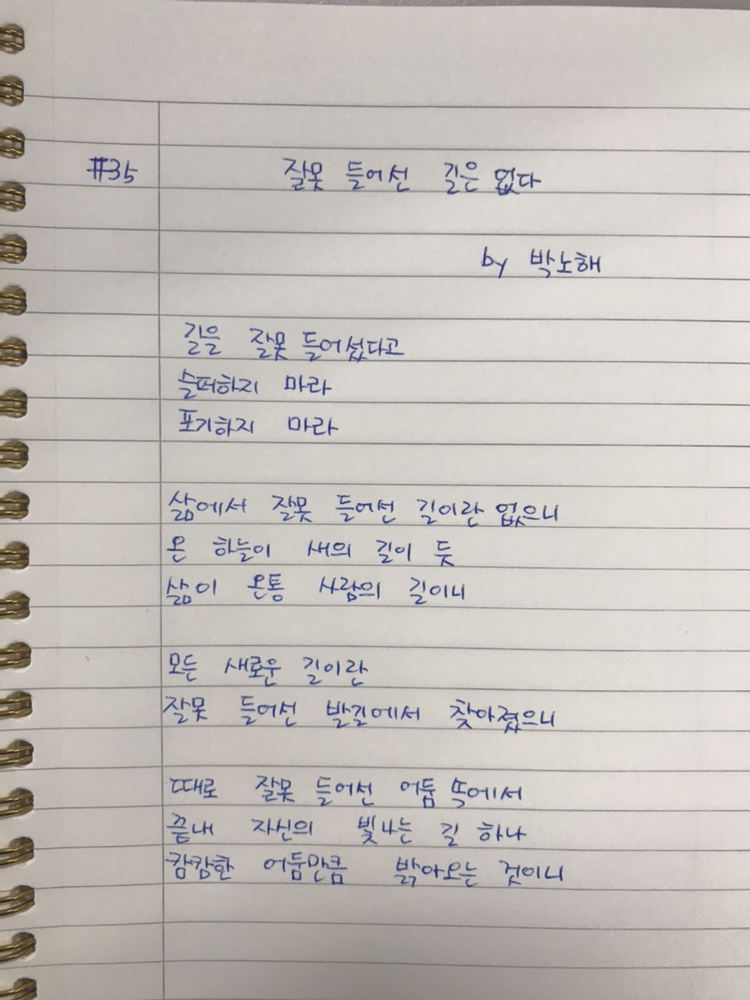 #35 잘못 들어선 길은 없다
by 박노해
길을 잘못 들어섰다고
슬퍼하지 마라
포기하지 마라
삶에서 잘못 들어선 길이란 없으니
온 하늘이 새의 길이 듯
삶이 온통 사람의 길이니
모든 새로운 길이란
잘못 들어선 발길에서 찾아졌으니
때로 잘못 들어선 어둠 속에서
끝내 자신의 빛나는 길 하나
캄캄한 어둠만큼 밝아오는 것이니